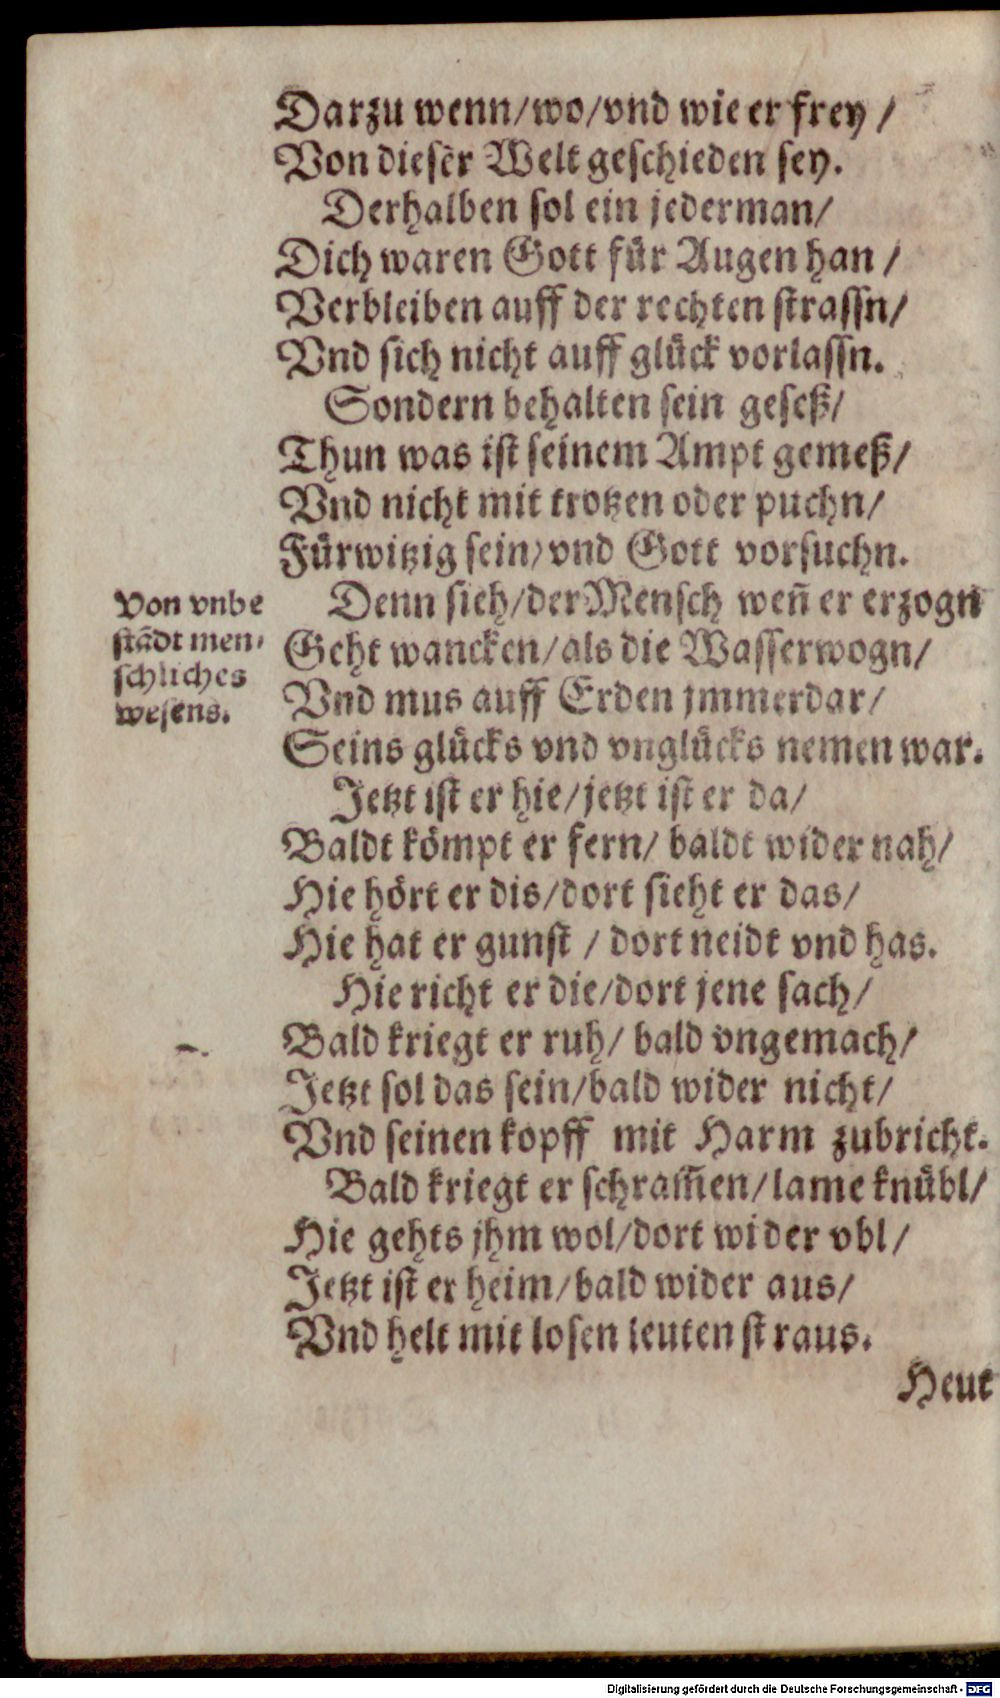 Darzu wenn/wo/vnd wie er frey /
Von dieser Welt geschieden sey.
Derhalben sol ein jederman/
Dich waren Gott für Augen han /
Verbleiben auff der rechten strassn/
Vnd sich nicht auff glück vorlassn.
Sondern behalten sein geseß/
Thun was ist seinem Ampt gemeß/
Vnd nicht mit trotzen oder puchn/
Fürwitzig sein/vnd Gott vorsuchn.
Von vnbe
stãdt men-
schliches
wesens.
Denn sieh/der Mensch weñ er erzogn
Geht wancken/als die Wasserwogn/
Vnd mus auff Erden jmmerdar/
Seins glücks vnd vnglücks nemen war.
Jetzt ist er hie/jetzt ist er da/
Baldt kömpt er fern/ baldt wider nah/
Hie hört er dis/dort sieht er das/
Hie hat er gunst / dort neidt vnd has.
Hie richt er die/dort jene sach/
Bald kriegt er ruh/ bald vngemach/
Jetzt sol das sein/bald wider nicht/
Vnd seinen kopff mit Harm zubricht.
Bald kriegt er schram̃en/lame knübl/
Hie gehts jhm wol/dort wider vbl/
Jetzt ist er heim/bald wider aus/
Vnd helt mit losen leuten straus.
Heut
Digitalisierung gefördert durch die Deutsche Forschungsgemeinschaft - DFG